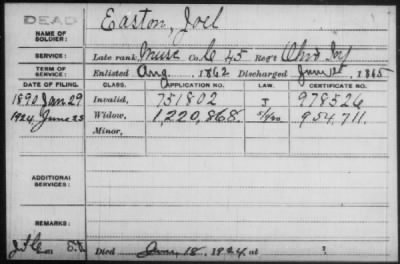 DEAD
NAME OF SOLDIER: Easton, Joel
SERVICE: Late rank, Musc Co. C 45 Reg't Ohio Inf
TERM OF SERVICE: Enlisted Aug 1862 Discharged June 12, 1865
DATE OF FILING. CLASS. APPLICATION NO. LAW. CERTIFICATE NO.
1890 Jan 29 Invalid, 751802 J 978526
1924, June 25 Widow, 1,220,868. 954,711.
Minor,
ADDITIONAL SERVICES:
REMARKS:
Died 18, 1924, at ?